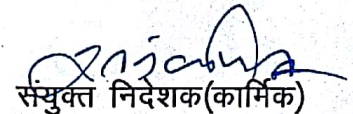 संयुक्त निदेशक(कार्मिक)